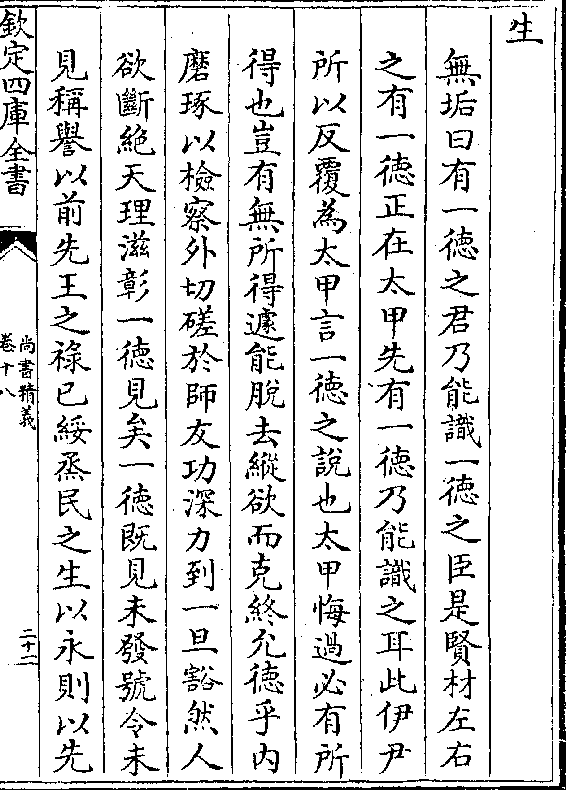 生
無垢曰有一德之君乃能識一德之臣是賢材左右
之有一德正在太甲先有一德乃能識之耳此伊尹
所以反覆為太甲言一德之說也太甲悔過必有所
得也豈有無所得遽能脫去縱欲而克終允德乎内
磨琢以檢察外切磋於師友功深力到一旦豁然人
欲斷絶天理滋彰一德見矣一德既見未發號令未
見稱譽以前先王之祿已綏烝民之生以永則以先
欽定四庫全書
尚書精義
卷十八
二十二